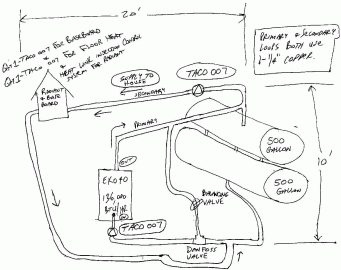 20'
QTY 1-TACO 007 FOR BASEBOARD
QTY 1-TACO 007 FOR FLOOR HEAT
& HEAT LINK INJECTION CONTROL
FOR RADIANT
PRIMARY & SECONDARY
LOOPS BOTH ARE
1-1/4" COPPER.
RADIANT & BASE
BOARD
SUPPLY TO
HOUSE
TACO 007
SECONDARY
PRIMARY
OUT
500
GALLON
10'
EKO 40
136,000
BTU/HR
500
GALLON
BALANCING
VALVE
TACO 007
DANFOSS
VALVE